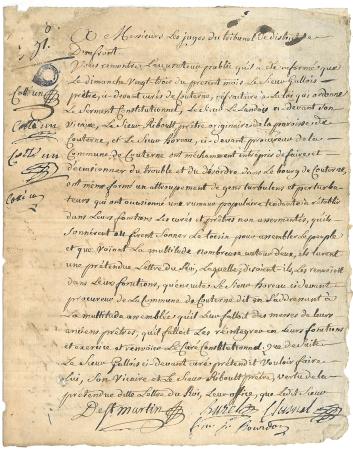 91.
A Messieurs Les juges du tribunal de district de
Domfront
Vous remontre L'accusateur public qu'il a été informé que
le dimanche vingt trois du present mois Le Sieur Gallois
prêtre, ci-devant curé de Couterne, refractaire à la loi qui ordonne
Le Serment Constitutionnel, Le Sieur Le Landois ci-devant son
Vicaire, Le Sieur Riboult prêtre originaire de la paroisse de
Couterne, et Le Sieur Boreau, ci-devant procureur de la
Commune de Couterne ont méchamment entrepris de faire et
d'occasionner du trouble et du désordre dans le bourg de Couterne,
ont même formé un attroupement de gens turbulens et perturba-
teurs qui ont occasionné une rumeur populaire tendante à rétablir
dans Leurs fonctions Les curés et prêtres non assermentés, qu'ils
Sonnèrent ou firent Sonner Le tocsin pour assembler Le peuple
et que voiant La multitude nombreuse autour d'eux, ils lurent
une prétendue Lettre du Roi, Laquelle, disoient-ils, Les remettoit
dans Leurs fonctions, qu'ensuite Le Sieur Boreau ci-devant
procureur de La Commune de Couterne dit en s'addressant à
La multitude assemblée qu'il Leur falloit des messes de leurs
anciens prêtres, qu'il falloit Les réintegrer en Leurs fonctions
et exercice et renvoier Le Curé Constitutionnel, que de suite
Le Sieur Gallois ci-devant curé prétendit vouloir faire
Lui, Son Vicaire et Le Sieur Riboult prêtre, vertu de la
prétendue dite Lettre du Roi, Leur office, que Ledit Sieur
Destmartin